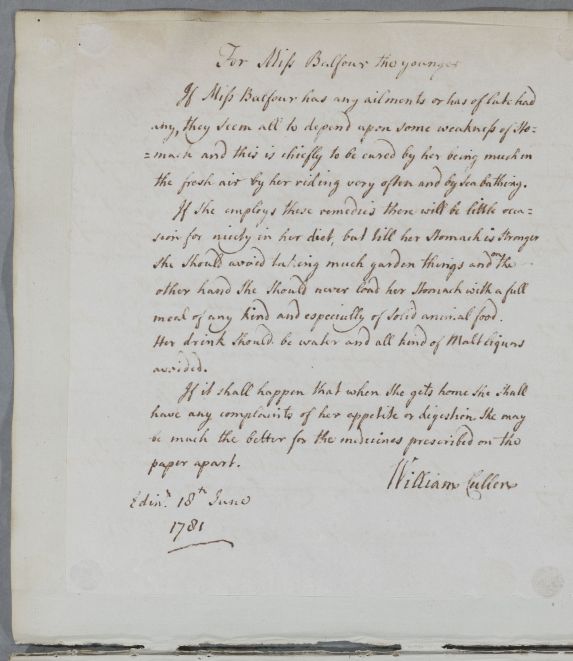 For Miss Balfour the younger
If Miss Balfour has any ailments or has of late had
any, they seem all to depend upon some weakness of Sto=
=mach and this is chiefly to be cured by her being much in
the fresh air by her riding very often and by Sea bathing.
If she employs these remedies there will be little occa=
sion for nicety in her diet, but till her Stomach is Stronger
She Should avoid taking much garden things and on the
other hand She Should never load her Stomach with a full
meal of any kind and especially of Solid animal food.
Her drink Should be water and all kind of Malt liquors
avoided.
If it shall happen that when She gets home She Shall
have any complaints of her appetite or digestion She may
be much the better for the medicines prescribed on the
paper apart.
William Cullen
Edinr. 18th June
1781